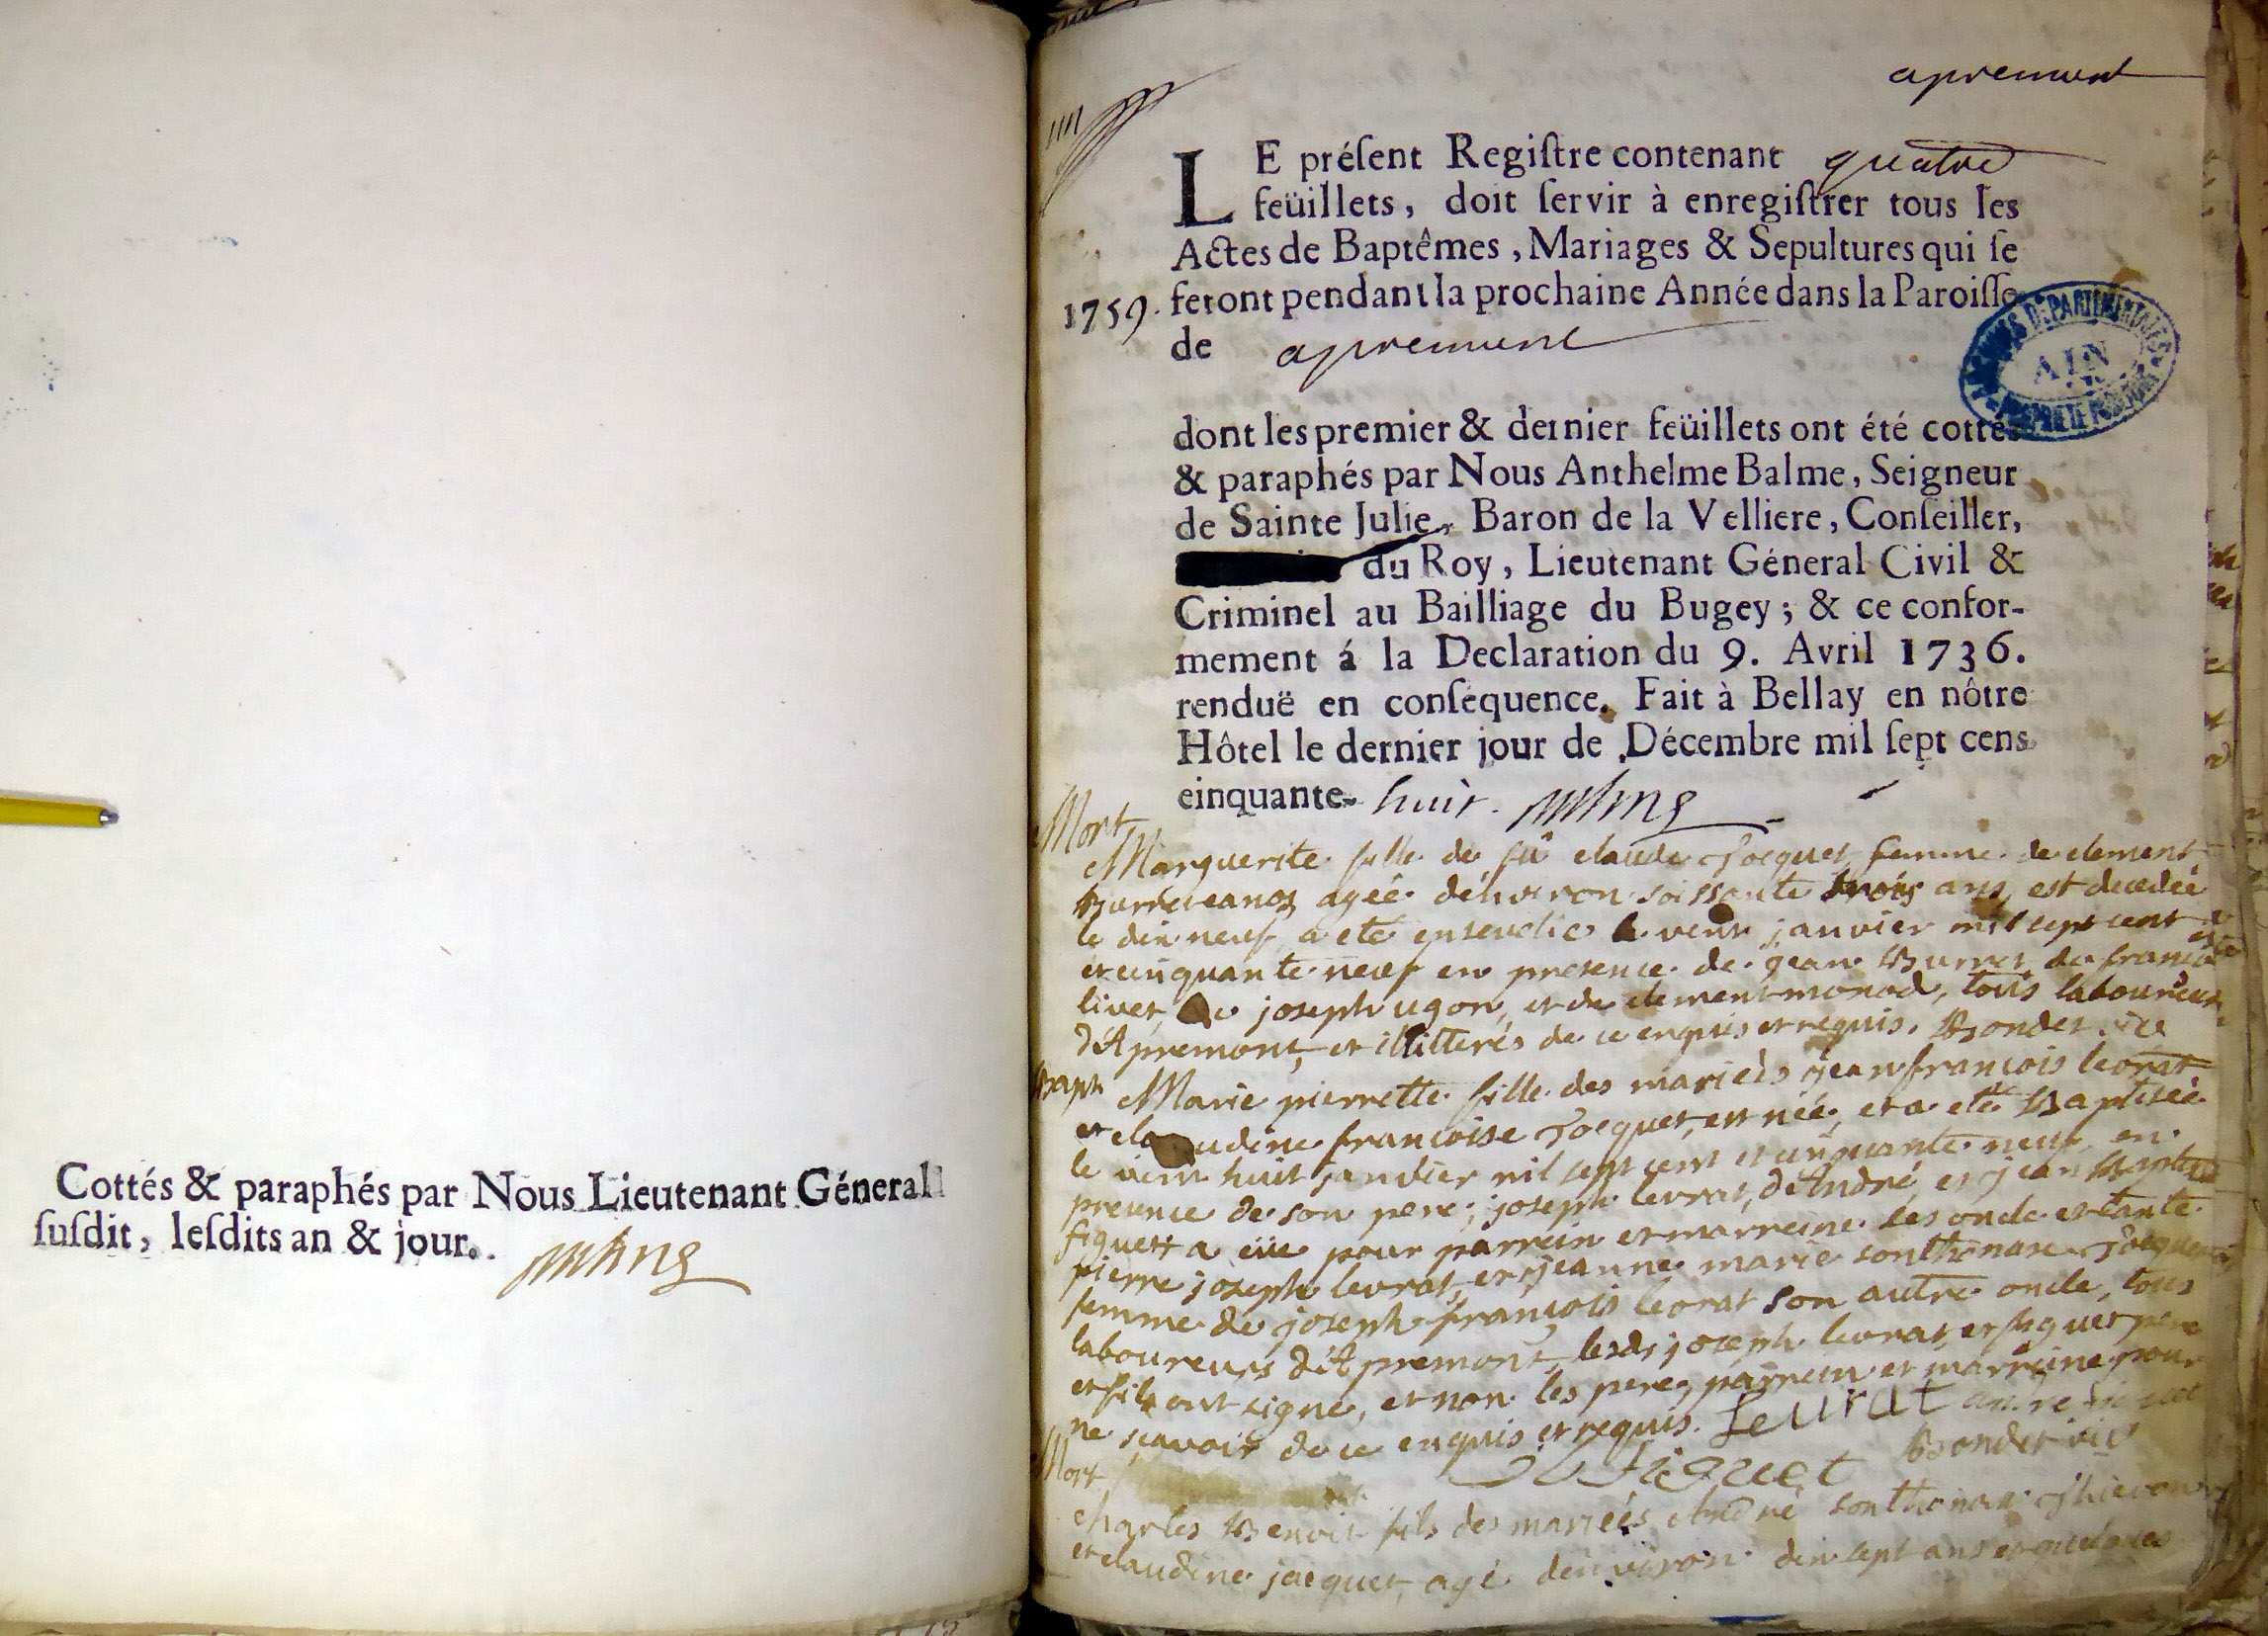 Cottés & paraphés par Nous Lieutenant Géneral
ſuſdit, leſdits an & jour.
apremont
LE préſent Regiſtre contenant quatre
feüillets, doit ſervir à enregiſtrer tous les
Actes de Baptêmes, Mariages & Sepultures qui ſe
1759. feront pendant la prochaine Année dans la Paroiſſe
de apremont
ARCHIVES DÉPARTEMENTALES
AIN
PROPRIÉTÉ PUBLIQUE
dont les premier & dernier feüillets ont été cottés
& paraphés par Nous Anthelme Balme, Seigneur
de Sainte Julie, Baron de la Velliere, Conſeiller,
du Roy, Lieutenant Géneral Civil &
Criminel au Bailliage du Bugey; & ce confor-
mement á la Declaration du 9. Avril 1736.
renduë en conſéquence. Fait à Bellay en nôtre
Hôtel le dernier jour de Décembre mil ſept cens
einquante- huit.
Mort
Marguerite fille de fû claude Jocquet femme de clement
agéé d'environ soissante trois ans, est decedéé
le dix neuf a eté ensevelie le vent janvier mil sept cent
et cinquante neuf en presence de jean Burret de francois
livet, de joseph ugon, et de clement monod, tous laboureurs
d'Apremont, et illitterés de ce enquis et requis. Bondet vic
Bapt Marie pierrette fille des mariéés jean francois levrat
et claudine francoise Jocquet, est néé, et a eté Baptiséé
le vent huit janvier mil sept cent et cinquante neuf en
presence de son pere, joseph levrat, d'André, et jean Baptiste
figuet a eüe pour parrein et marreine ses oncle et tante
pierre joseph levrat, et jeanne marie sonthonax Jocquet
femme de joseph francois levrat son autre oncle, tous
laboureurs d'Apremont, lesds joseph levrat, et figuet pere
et fils ont signé, et non les pere, parrein et marreine pour
ne sçavoir de ce enquis et requis. Levrat andre figuet
Figuet Bondet vic
Mort
Charles Benoit fils des mariéés André sonthonax
et claudine jacquet, agé d'environ dix sept ans et